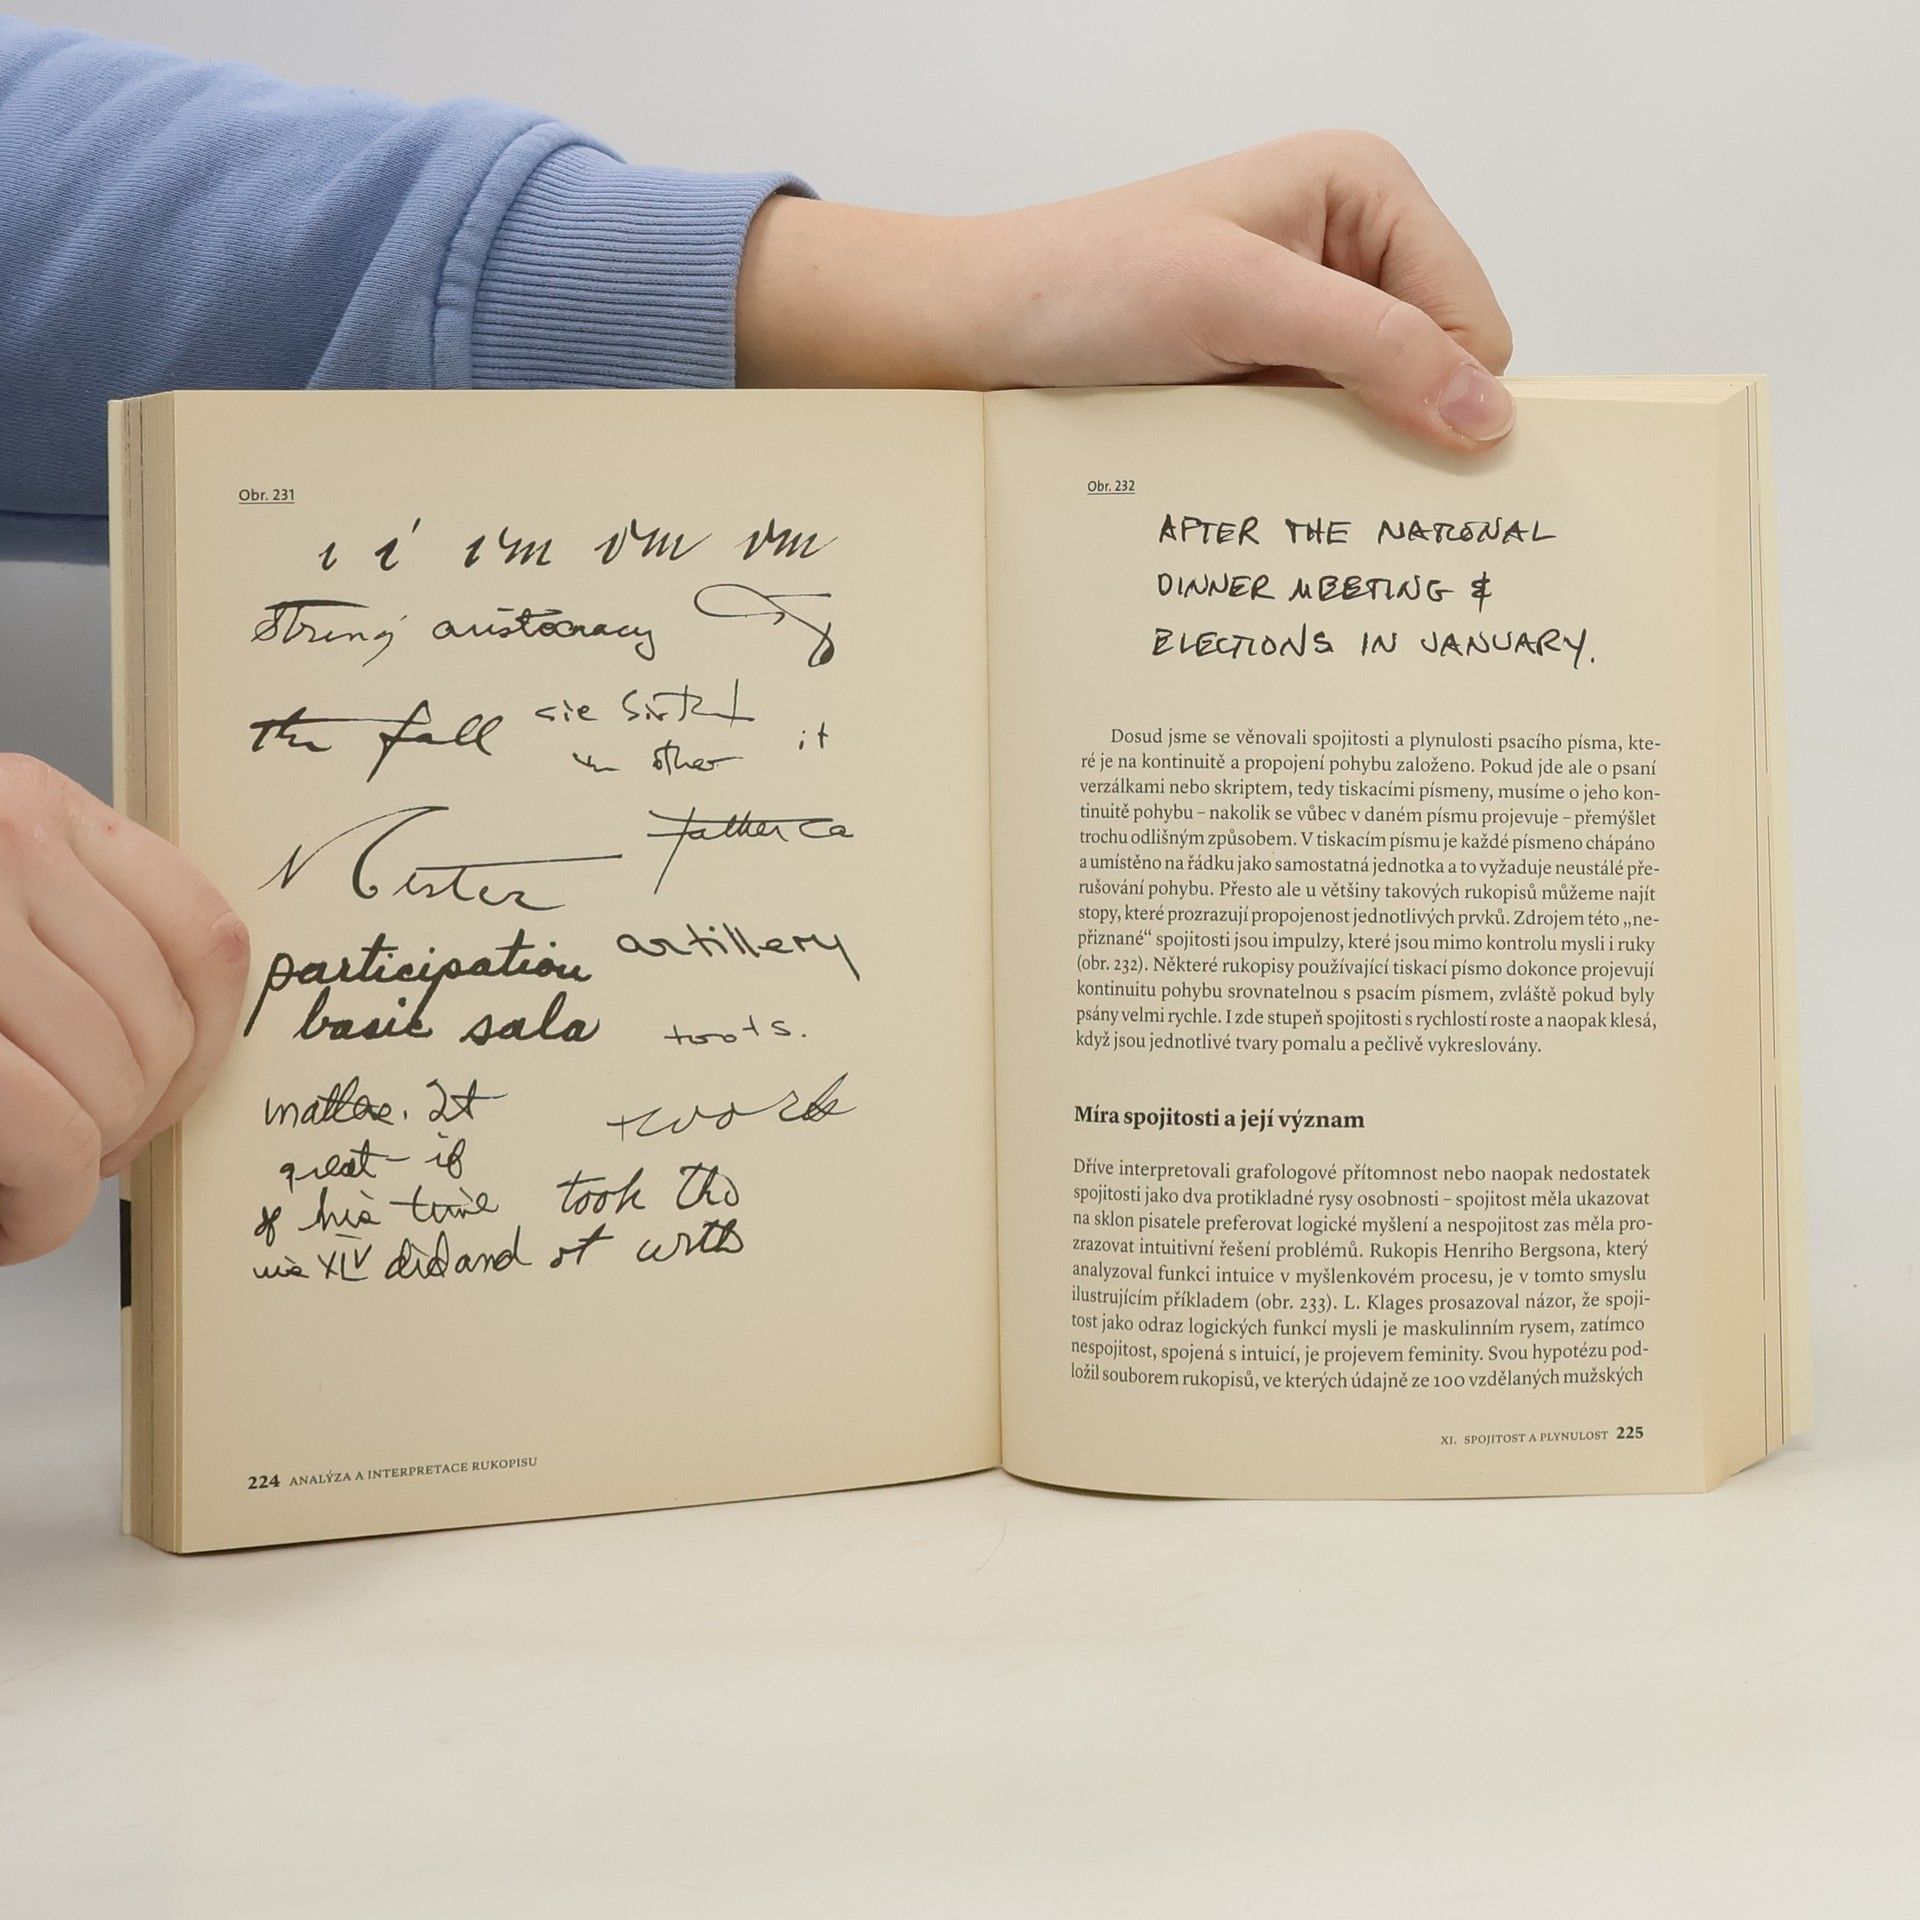 Obr. 231
i i' im im im
String aristocracy
the fall
it
other
father ca
participation artillery
basic sala
toots.
matter. It
work
great if
of his time took the
XIV did and
Obr. 232
AFTER THE NATIONAL
DINNER MEETING &
ELECTIONS IN JANUARY.
Dosud jsme se věnovali spojitosti a plynulosti psacího písma, kte-
ré je na kontinuitě a propojení pohybu založeno. Pokud jde ale o psaní
verzálkami nebo skriptem, tedy tiskacími písmeny, musíme o jeho kon-
tinuitě pohybu – nakolik se vůbec v daném písmu projevuje – přemýšlet
trochu odlišným způsobem. V tiskacím písmu je každé písmeno chápáno
a umístěno na řádku jako samostatná jednotka a to vyžaduje neustálé pře-
rušování pohybu. Přesto ale u většiny takových rukopisů můžeme najít
stopy, které prozrazují propojenost jednotlivých prvků. Zdrojem této „ne-
přiznané“ spojitosti jsou impulzy, které jsou mimo kontrolu mysli i ruky
(obr. 232). Některé rukopisy používající tiskací písmo dokonce projevují
kontinuitu pohybu srovnatelnou s psacím písmem, zvláště pokud byly
psány velmi rychle. I zde stupeň spojitosti s rychlostí roste a naopak klesá,
když jsou jednotlivé tvary pomalu a pečlivě vykreslovány.
Míra spojitosti a její význam
Dříve interpretovali grafologové přítomnost nebo naopak nedostatek
spojitosti jako dva protikladné rysy osobnosti – spojitost měla ukazovat
na sklon pisatele preferovat logické myšlení a nespojitost zas měla pro-
zrazovat intuitivní řešení problémů. Rukopis Henriho Bergsona, který
analyzoval funkci intuice v myšlenkovém procesu, je v tomto smyslu
ilustrujícím příkladem (obr. 233). L. Klages prosazoval názor, že spoji-
tost jako odraz logických funkcí mysli je maskulinním rysem, zatímco
nespojitost, spojená s intuicí, je projevem feminity. Svou hypotézu pod-
ložil souborem rukopisů, ve kterých údajně ze 100 vzdělaných mužských
224 ANALÝZA A INTERPRETACE RUKOPISU
XI. SPOJITOST A PLYNULOST 225